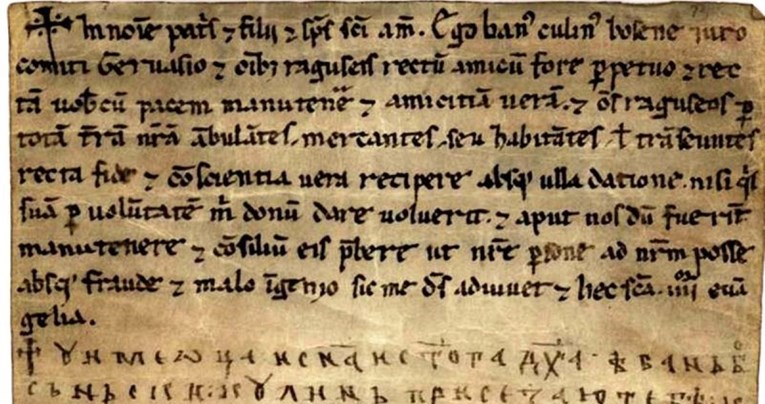 ✝ In noīe patͥs ⁊ filii ⁊ sp̄s sc̄i am̄. Ego banꝰ culinꝰ bosene iuro
comiti Geruasio ⁊ oīb; raguseis rectū amicū fore ꝑpetuo ⁊ rec
tā uobcū pacem manutenē ⁊ amicitiā uerā. ⁊ om̄s raguseos ꝑ
totā t̄rā n̄rā ābulātes, mercantes, seu habitātes, ł trāseuntes
recta fide ⁊ cōscientia uera recipere absq; ulla datione. nisi q̄s
suā ꝑ uolūtatē m̄ donū dare uoluerit. ⁊ aput nos dū fuerīt
manutenere ⁊ cōsiliū eis p̄bere ut n̄re ꝑsone ad nr̄m posse
absq; fraude ⁊ malo īgenio sic me d̄s adiuuet ⁊ hec sc̄a. iiii euā
gelia.
✝ Ꙋ имє ѡца и с҃на и с҃тога дх҃а · ѣ банъ б